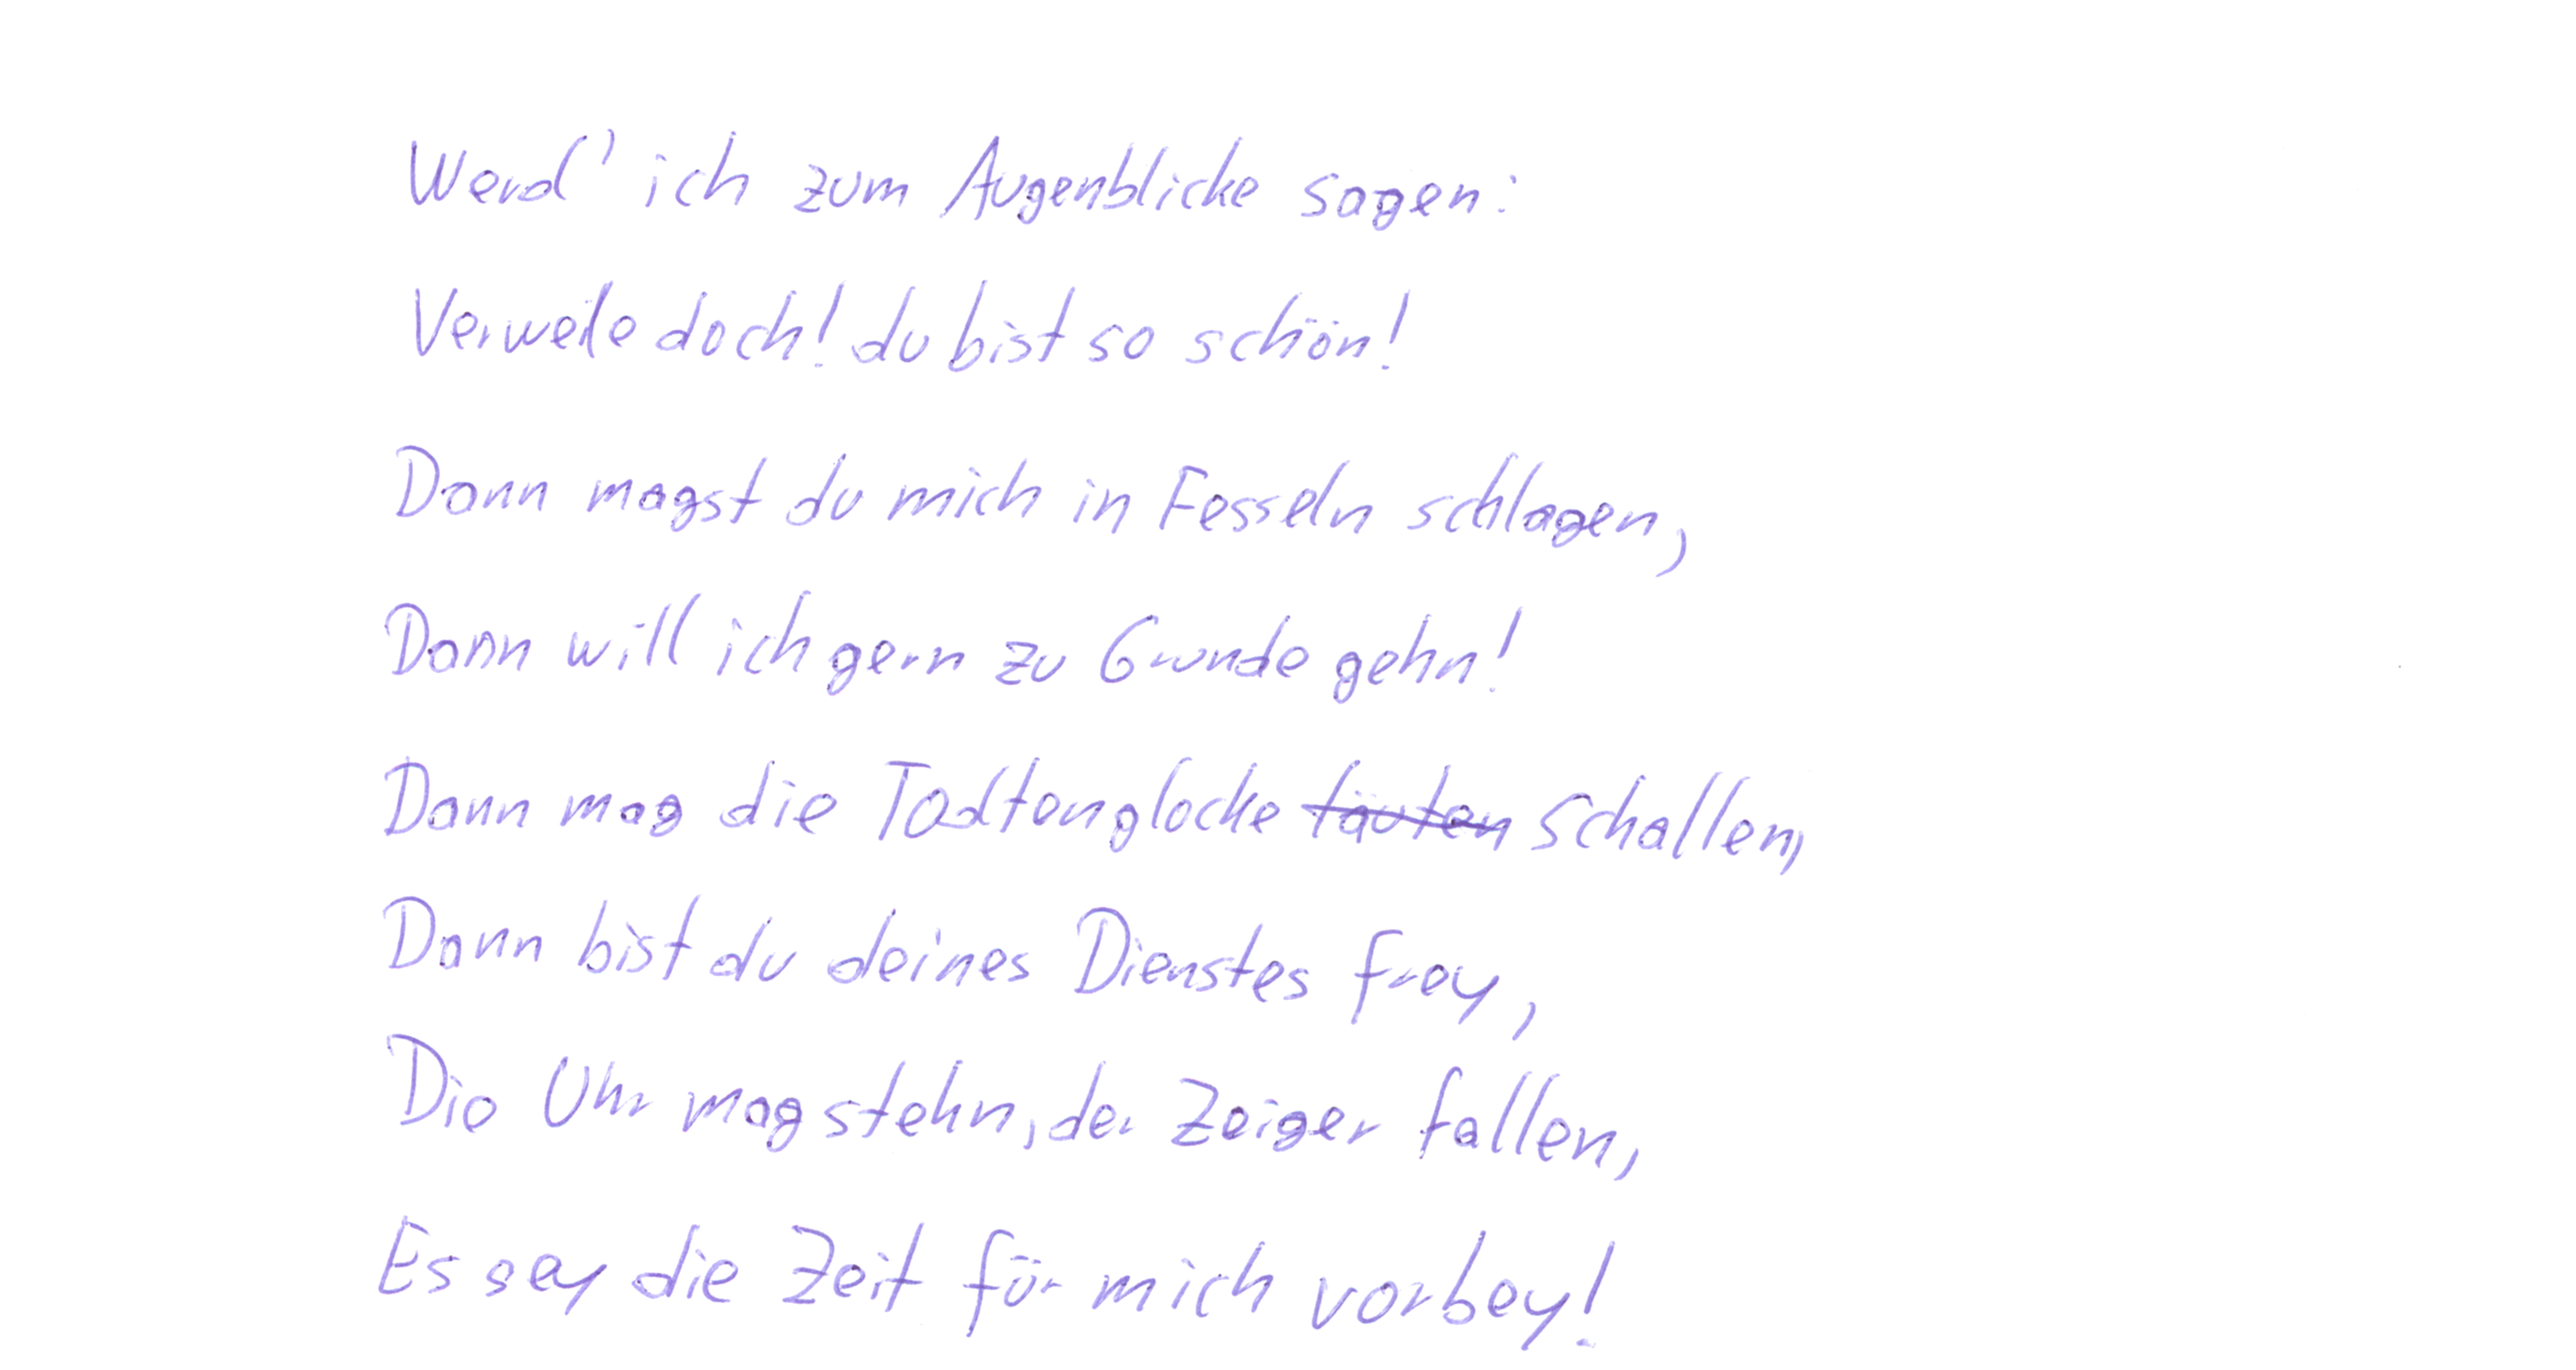 Werd' ich zum Augenblicke sagen:
Verweile doch! du bist so schön!
Dann magst du mich in Fesseln schlagen,
Dann will ich gern zu Grunde gehn!
Dann mag die Todtenglocke läuten schallen,
Dann bist du deines Dienstes frey,
Die Uhr mag stehn, der Zeiger fallen,
Es sey die Zeit für mich vorbey!